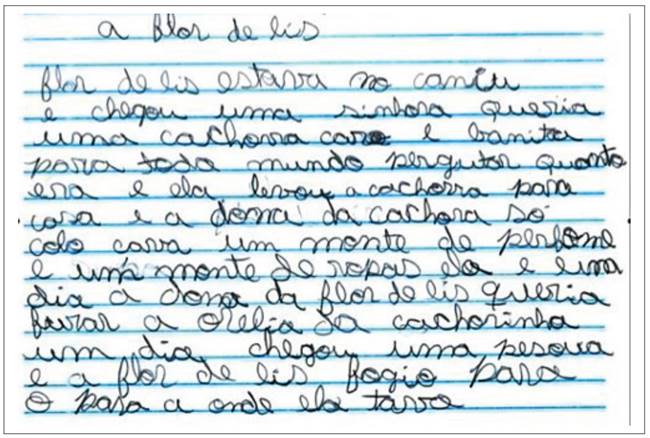 a flor de lis
flor de lis estarra no caniu
e chegou uma sinhora queria
uma cachorra cara e banita
para toda mundo pergutar quanto
era e ela levou a cachorra para
casa e a dona da cachora só
colo cava um monte de perfome
e um monte de ropas ela e uma
dia a dona da flor de lis queria
furar a orelia da cachorinha
um dia chegou uma pesoua
e a flor de lis fogio para
o para a onde ela tarra